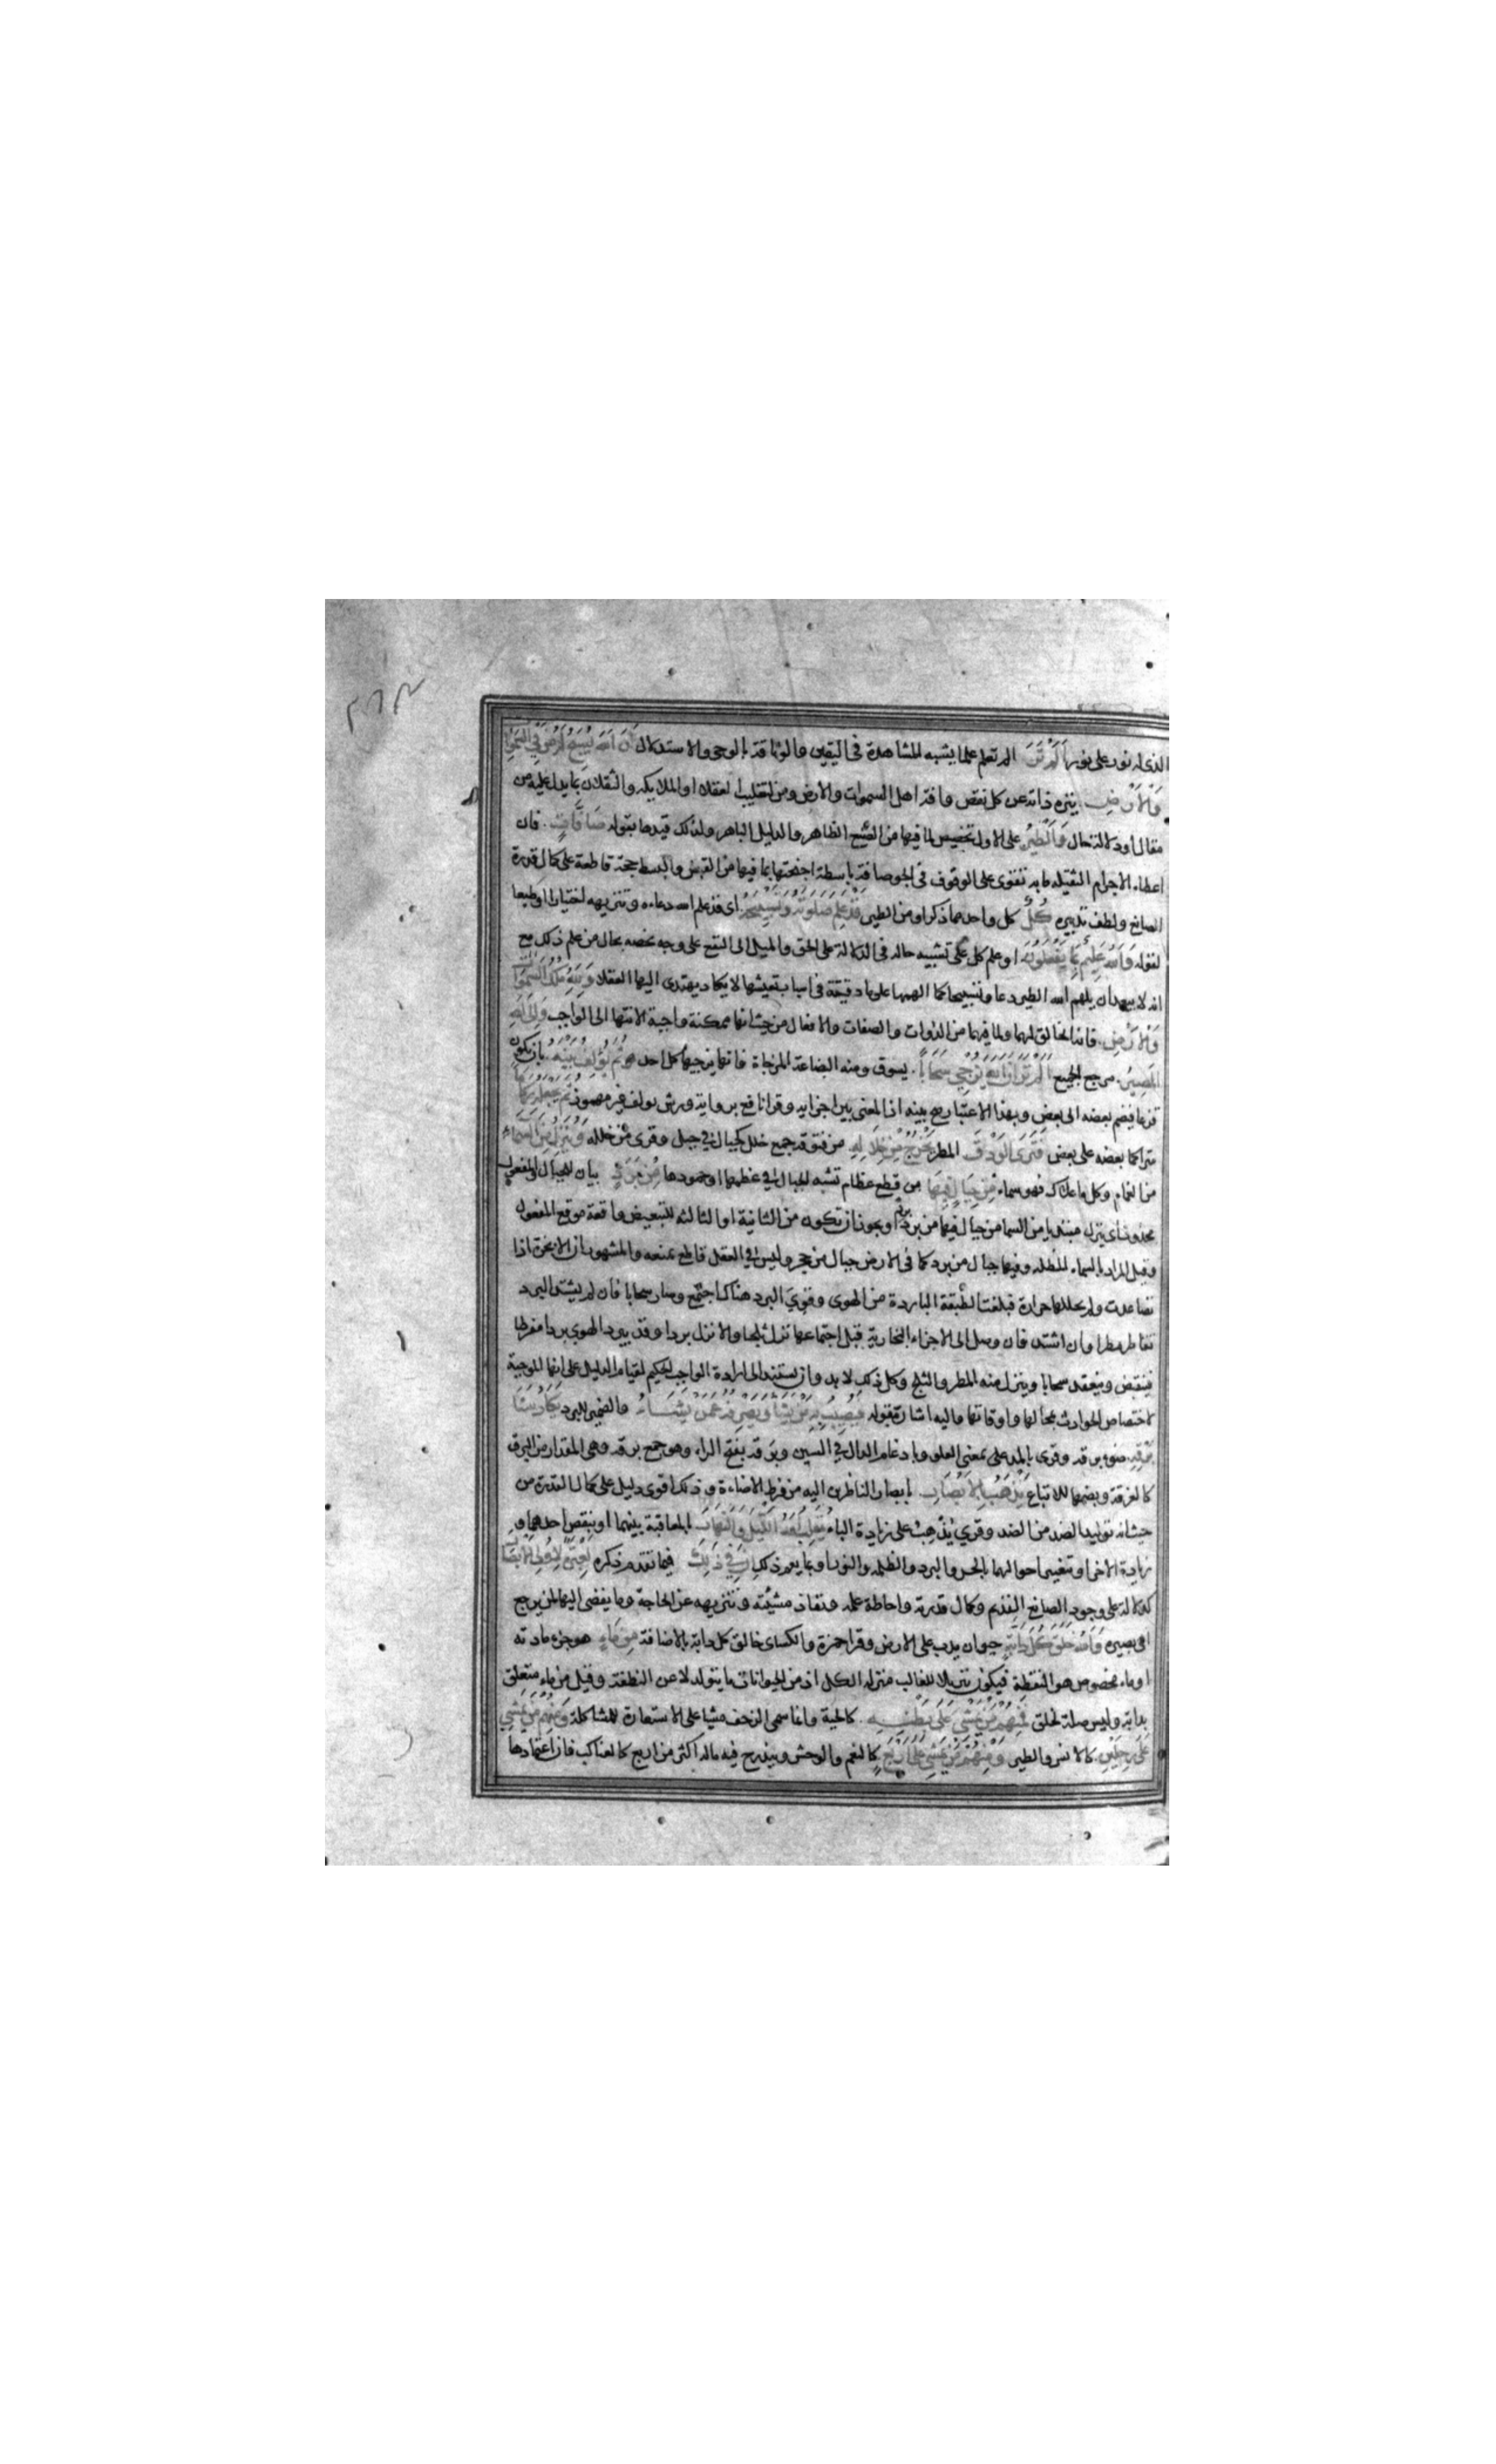 الذى له نور على نور أَلَمْ تَرَ الم تعلم علما يشبه المشاهدة فى اليقين والوثاقة بالوحى والاستدلال أَنَّ اللَّهَ يُسَبِّحُ لَهُ مَنْ فِي السَّمَوَاتِ
وَالْأَرْضِ ينزه ذاته عن كل نقص وافة اهل السموات والارض ومن لتغليب العقلاء او الملايكة والثقلان بما يدل عليه من
مقال او دلالة حال وَالطَّيْرُ على الاول تخصيص لما فيها من الصنع الظاهر والدليل الباهر ولذلك قيدها بقوله صَافَّاتٍ فان
اعطاء الاجرام الثقيلة ما به تتقوى على الوقوف فى الجو صافة باسطة اجنحتها بما فيها من القبض والبسط حجة قاطعة على كمال قدرة
الصانع ولطف تدبيره كُلٌّ كل واحد مما ذكر او من الطير قَدْ عَلِمَ صَلَوتَهُ وَتَسْبِيحَهُ اى قد علم الله دعاءه وتنزيهه اختيارا او طبعا
لقوله وَاللَّهُ عَلِيمٌ بِمَا يَفْعَلُونَ او علم كل على تشبيه حاله فى الدلالة على الحق والميل الى النفع على وجه يخصه بحال من علم ذلك مع
انه لا يبعد ان يلهم الله الطير دعا وتسبيحا كما الهمها علوما دقيقة فى اسباب تعيشها لا يكاد يهتدى اليها العقلا وَلِلَّهِ مُلْكُ السَّمَوَاتِ
وَالْأَرْضِ فانه الخالق لهما ولما فيهما من الذوات والصفات والافعال من حيث انها ممكنة واجبة الانتها الى الواجب وَإِلَى اللَّهِ
الْمَصِيرُ مرجع الجميع أَلَمْ تَرَ أَنَّ اللَّهَ يُزْجِي سَحَابًا يسوق ومنه البضاعة المزجاة فانها يزجيها كل احد ثُمَّ يُؤَلِّفُ بَيْنَهُ بان يكون
قزعا فيضم بعضه الى بعض وبهذا الاعتبار صح بينه اذ المعنى بين اجزايه وقرا نافع برواية ورش يولف غير مهموز ثُمَّ يَجْعَلُهُ رُكَامًا
متراكما بعضه على بعض فَتَرَى الْوَدْقَ المطر يَخْرُجُ مِنْ خِلَالِهِ من فتوقه جمع خلل كجبال فى جبل وقرى من خلله وَيُنَزِّلُ مِنَ السَّمَاءِ
من الغمام وكل ما علاك فهو سماء مِنْ جِبَالٍ فِيهَا من قطع عظام تشبه الجبال فى عظمها او جمودها مِنْ بَرَدٍ بيان للجبال والمفعول
محذوف اى ينزل مبتديا من السما من جبال فيها من برد بردا ويجوز ان تكون من الثانية او الثالثة للتبعيض واقعة موقع المفعول
وقيل المراد بالسماء المظلة وفيها جبال من برد كما فى الارض جبال من حجر وليس فى العقل قاطع يمنعه والمشهور ان الابخرة اذا
تصاعدت ولم يحللها حرارة فبلغت الطبقة الباردة من الهوى وقوى البرد هناك اجتمع وصار سحابا فان لم يشتد البرد
تقاطر مطرا وان اشتد فان وصل الى الاجزاء البخارية قبل اجتماعها نزل ثلجا والا نزل بردا وقد يبرد الهوى بردا مفرطا
فينقبض وينعقد سحابا وينزل منه المطر والثلج وكل ذلك لا بد وان يستند الى ارادة الواجب الحكيم لقيام الدليل على انها الموجبة
لاختصاص الحوادث بمحالها واوقاتها واليه اشار بقوله فَيُصِيبُ بِهِ مَنْ يَشَاءُ وَيَصْرِفُهُ عَمَّنْ يَشَاءُ والضمير للبرد يَكَادُ سَنَا
بَرْقِهِ ضوء برقه وقرى بالمد على بمعنى العلو وبادغام الدال فى السين وبرقه بفتح الراء وهو جمع برقة وهى المقدار من البرق
كالغرفة وبضمها للاتباع يَذْهَبُ بِالْأَبْصَارِ بابصار الناظرين اليه من فرط الاضاءة وذلك اقوى دليل على كمال القدرة من
حيث انه توليد الضد من الضد وقرى يذهب على زيادة الباء يُقَلِّبُ اللَّهُ اللَّيْلَ وَالنَّهَارَ بالمعاقبة بينهما او بنقص احدهما و
زيادة الاخر او تغيير احوالهما بالحر والبرد والظلمة والنور او بما يعم ذلك إِنَّ فِي ذَلِكَ فيما تقدم ذكره لَعِبْرَةً لِأُولِي الْأَبْصَارِ
لدلالة على وجود الصانع القديم وكمال قدرته واحاطة علمه ونفاذ مشيئته وتنزيهه عن الحاجة وما يفضى اليها لمن يرجع
الى بصيرة وَاللَّهُ خَلَقَ كُلَّ دَابَّةٍ حيوان يدب على الارض وقرا حمزة والكساى خالق كل دابة بالاضافة مِنْ مَاءٍ هو جزء مادته
او ماء مخصوص هو النطفة فيكون تنزيلا للغالب منزلة الكل اذ من الحيوانات ما يتولد لا عن النطفة وقيل من ماء متعلق
بدابة وليس صلة لخلق فَمِنْهُمْ مَنْ يَمْشِي عَلَى بَطْنِهِ كالحية وانما سمى الزحف مشيا على الاستعارة للمشاكلة وَمِنْهُمْ مَنْ يَمْشِي
عَلَى رِجْلَيْنِ كالانس والطير وَمِنْهُمْ مَنْ يَمْشِي عَلَى أَرْبَعٍ كالنعم والوحش ويندرج فيه ماله اكثر من اربع كالعناكب فان اعتمادها